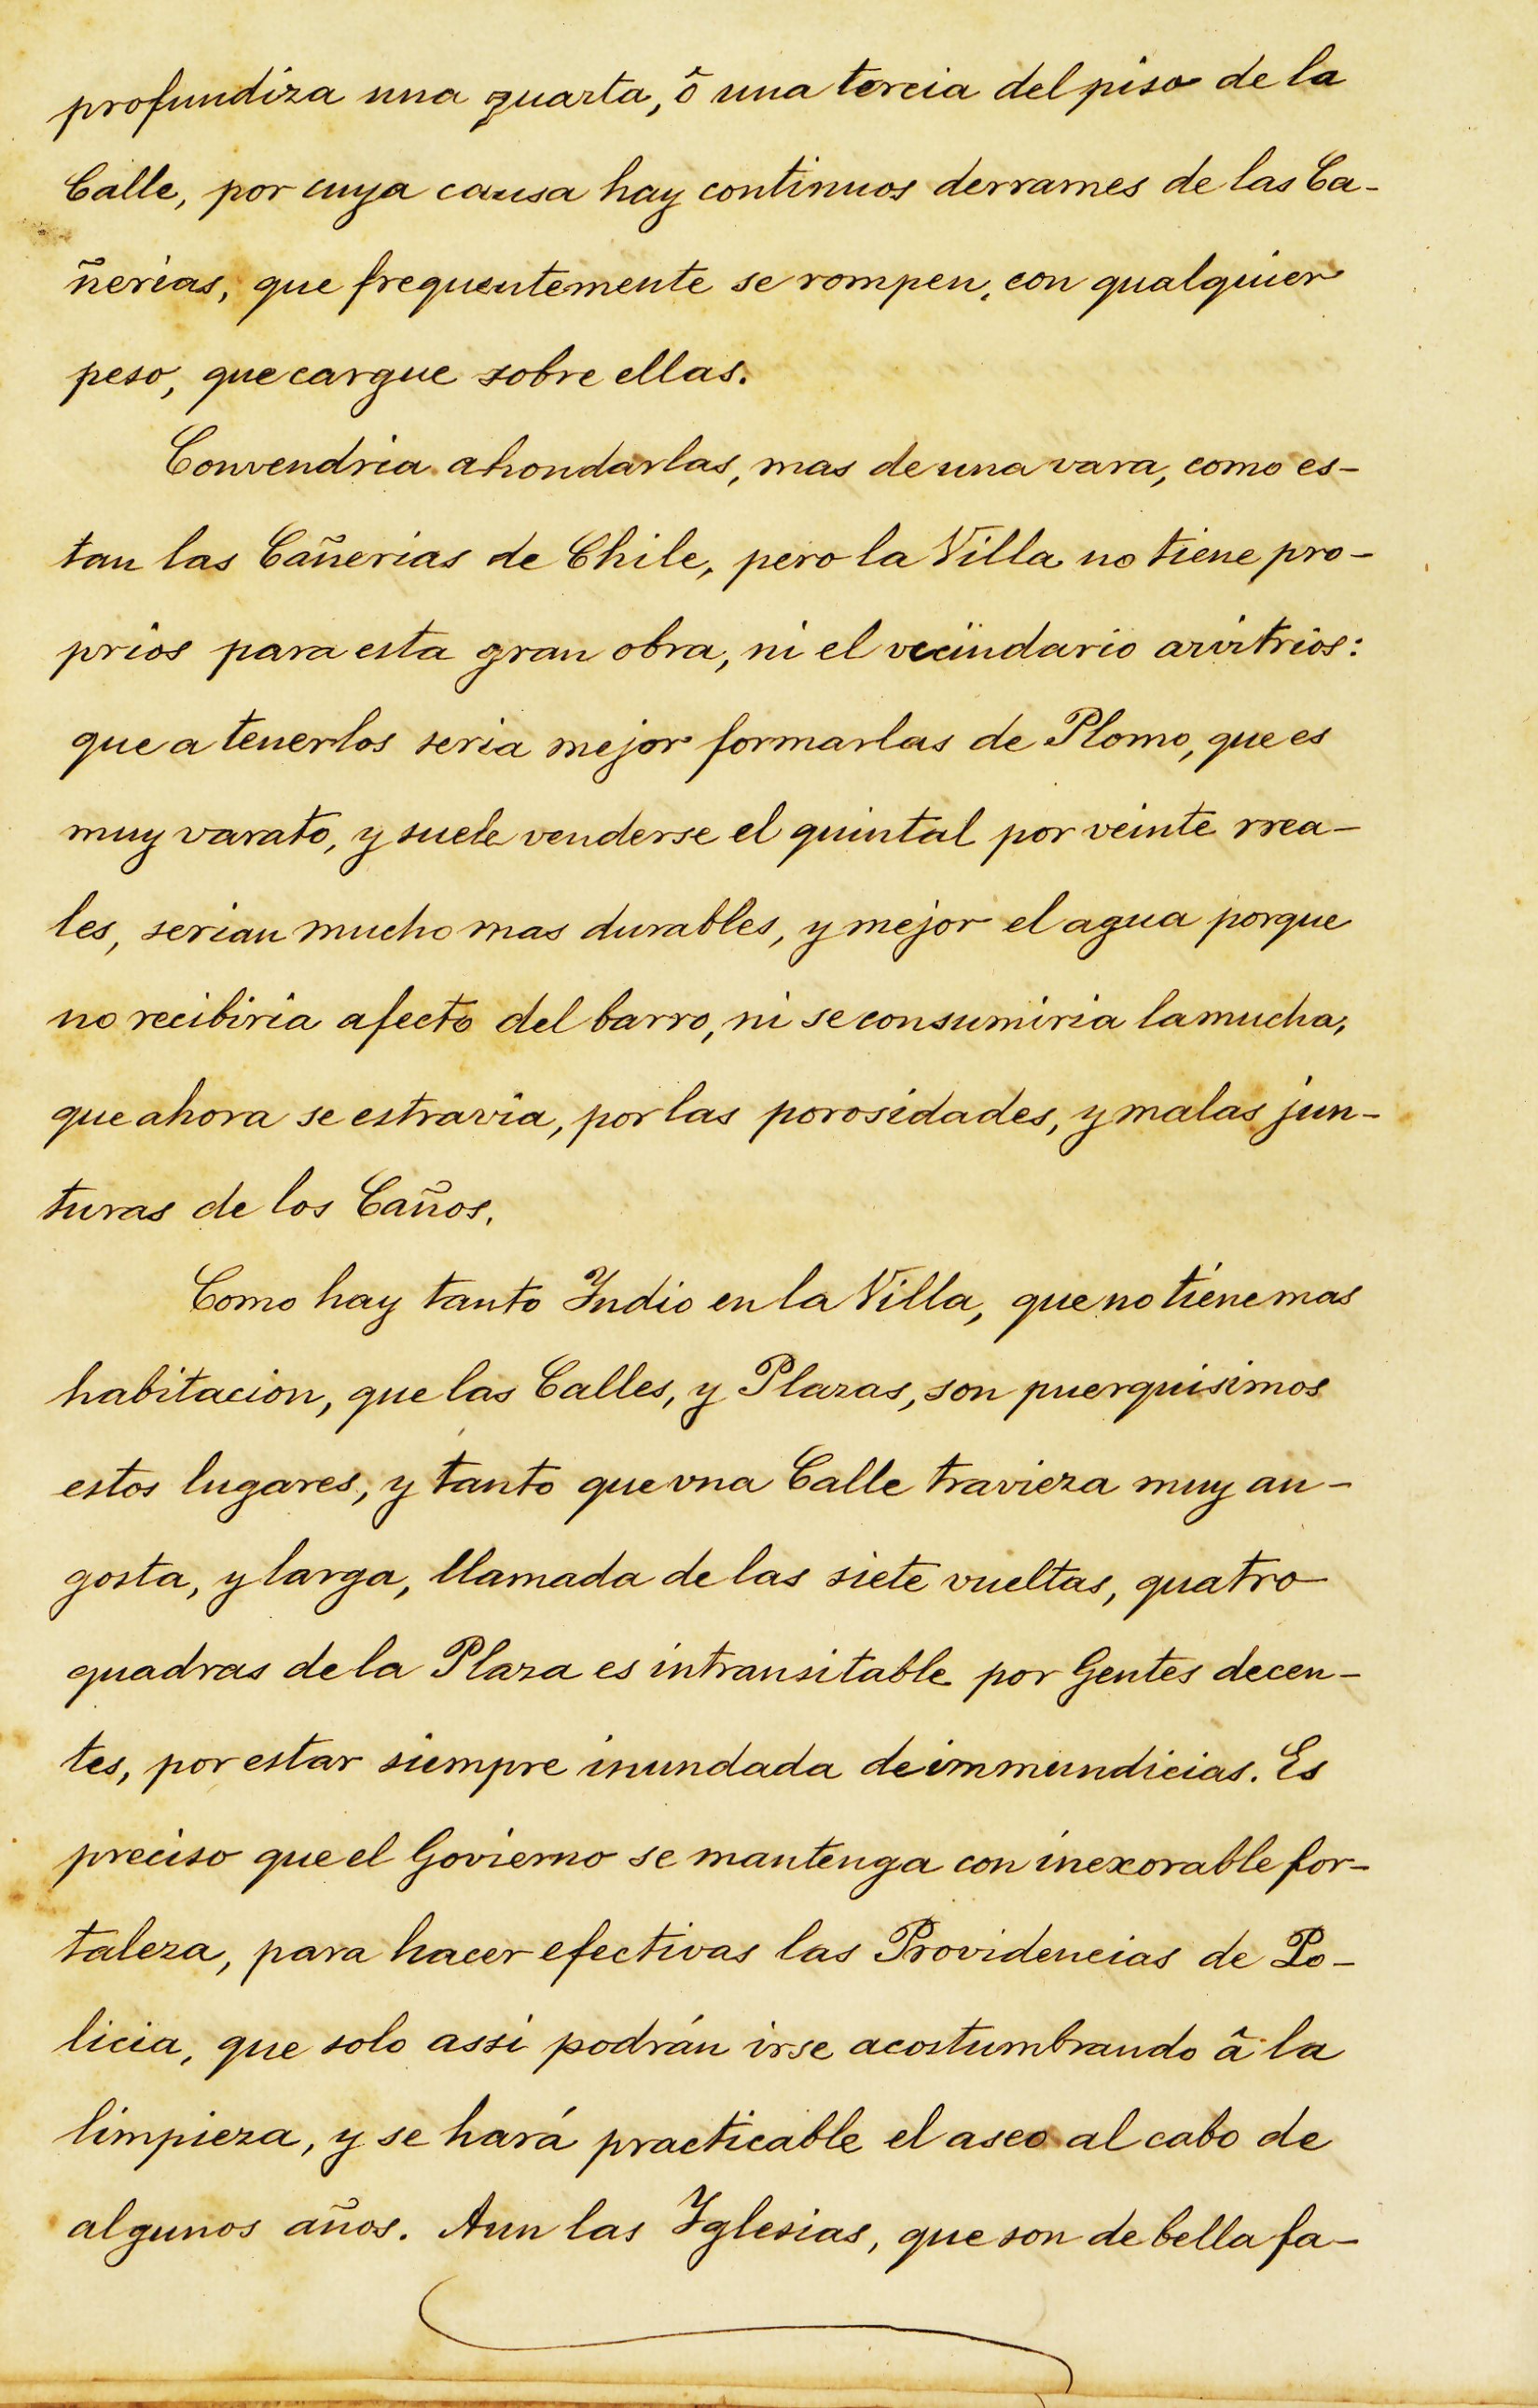 profundiza una quarta, ô una tercia del piso de la
Calle, por cuya causa hay continuos derrames de las Ca-
ñerias, que frequentemente se rompen, con qualquier
peso, que cargue sobre ellas.
Convendria ahondarlas, mas de una vara, como es-
tan las Cañerias de Chile, pero la Villa no tiene pro-
prios para esta gran obra, ni el vecindario arvitrios:
que a tenerlos seria mejor formarlas de Plomo, que es
muy varato, y suele venderse el quintal por veinte rrea-
les, serian mucho mas durables, y mejor el agua porque
no recibiria afecto del barro, ni se consumiria la mucha,
que ahora se estravia, por las porosidades, y malas jun-
turas de los Caños.
Como hay tanto Indio en la Villa, que no tiene mas
habitacion, que las Calles, y Plazas, son puerquisimos
estos lugares, y tanto que vna Calle travieza muy an-
gosta, y larga, llamada de las siete vueltas, quatro
quadras de la Plaza es intransitable por Gentes decen-
tes, por estar siempre inundada de immundicias. Es
preciso que el Govierno se mantenga con inexorable for-
taleza, para hacer efectivas las Providencias de Po-
licia, que solo assi podrán irse acostumbrando â la
limpieza, y se hará practicable el aseo al cabo de
algunos años. Aun las Iglesias, que son de bella fa-